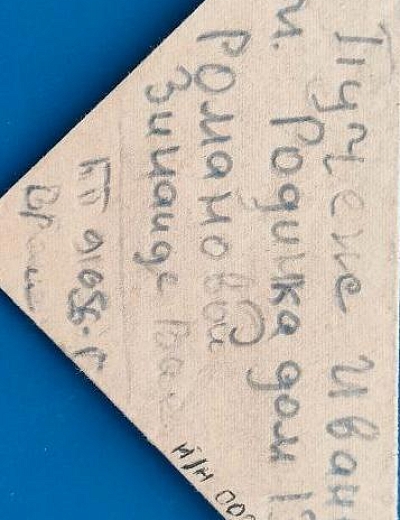 Пучеже Иван
и. Родинка дом 1
Романовой
Зинаиде Вас
ПП 01056-Г
Н/Н 000